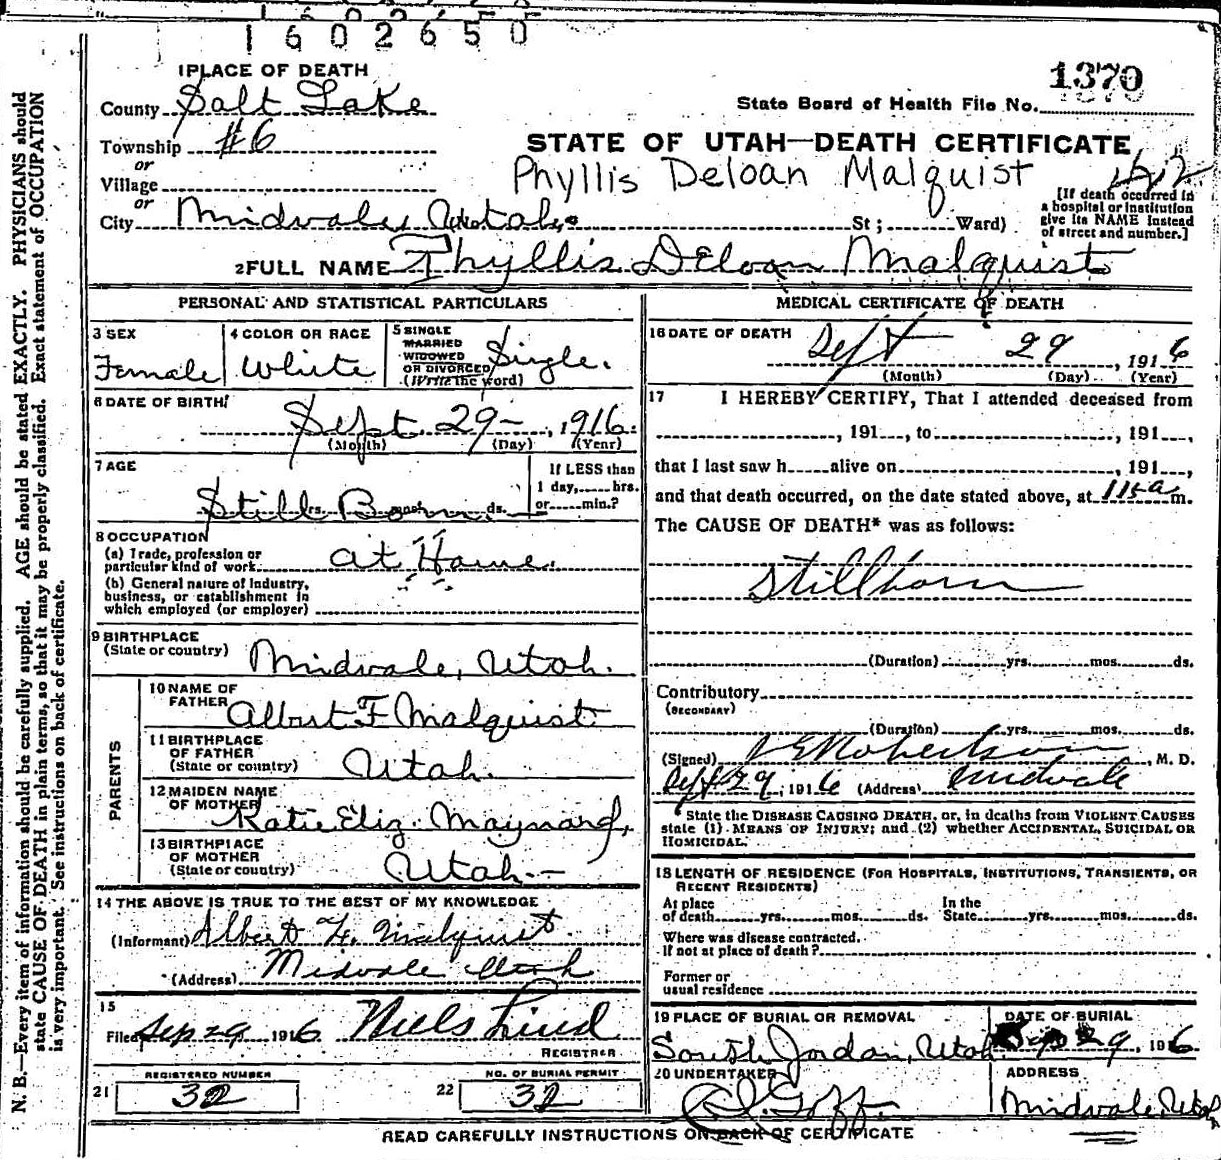 1602650
1370
1 PLACE OF DEATH
County Salt Lake
State Board of Health File No.
Township #6
STATE OF UTAH—DEATH CERTIFICATE
or
Village
Phyllis Deloan Malquist
[If death occurred in a hospital or institution give its NAME instead of street and number.]
or
City Midvale, Utah. St; Ward)
2 FULL NAME Phyllis DeLoan Malquist
PERSONAL AND STATISTICAL PARTICULARS
3 SEX
Female
4 COLOR OR RACE
White
5 SINGLE
MARRIED
WIDOWED
OR DIVORCED
(Write the word)
Single.
6 DATE OF BIRTH
Sept. 29 - , 1916.
(Month) (Day) (Year)
7 AGE
Still Born
yrs. mos. ds.
If LESS than
1 day, hrs.
or min.?
8 OCCUPATION
(a) Trade, profession or
particular kind of work
at Home.
(b) General nature of Industry,
business, or establishment in
which employed (or employer)
9 BIRTHPLACE
(State or country)
Midvale, Utah.
PARENTS
10 NAME OF
FATHER
Albert F Malquist
11 BIRTHPLACE
OF FATHER
(State or country)
Utah.
12 MAIDEN NAME
OF MOTHER
Katie Eliz. Maynard,
13 BIRTHPLACE
OF MOTHER
(State or country)
Utah.-
14 THE ABOVE IS TRUE TO THE BEST OF MY KNOWLEDGE
(Informant) Albert F. Malquist.
(Address) Midvale Utah
15
Filed Sep 29 1916 Niels Lind
REGISTRAR
REGISTERED NUMBER
21 32
NO. OF BURIAL PERMIT
22 32
MEDICAL CERTIFICATE OF DEATH
16 DATE OF DEATH
Sept 29 , 1916
(Month) (Day) (Year)
17 I HEREBY CERTIFY, That I attended deceased from
, 191 , to , 191 ,
that I last saw h alive on , 191 ,
and that death occurred, on the date stated above, at 115 a m.
The CAUSE OF DEATH* was as follows:
Stillborn
(Duration) yrs. mos. ds.
Contributory
(SECONDARY)
(Duration) yrs. mos. ds.
(Signed) Robertson, M. D.
Sept 29, 1916 (Address) Midvale
*State the DISEASE CAUSING DEATH, or, in deaths from VIOLENT CAUSES
state (1) MEANS OF INJURY; and (2) whether ACCIDENTAL, SUICIDAL OR
HOMICIDAL.
18 LENGTH OF RESIDENCE (FOR HOSPITALS, INSTITUTIONS, TRANSIENTS, OR
RECENT RESIDENTS)
At place
of death yrs. mos. ds.
In the
State yrs. mos. ds.
Where was disease contracted.
if not at place of death?
Former or
usual residence
19 PLACE OF BURIAL OR REMOVAL
South Jordan, Utah
DATE OF BURIAL
Sep 29, 1916.
20 UNDERTAKER
Goff.
ADDRESS
Midvale, Utah
READ CAREFULLY INSTRUCTIONS ON BACK OF CERTIFICATE
N. B.—Every item of information should be carefully supplied. AGE should be stated EXACTLY. PHYSICIANS should
state CAUSE OF DEATH in plain terms, so that it may be properly classified. Exact statement of OCCUPATION
is very important. See instructions on back of certificate.